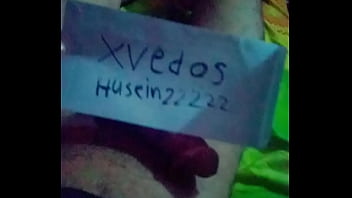 xvedos
Husein22222